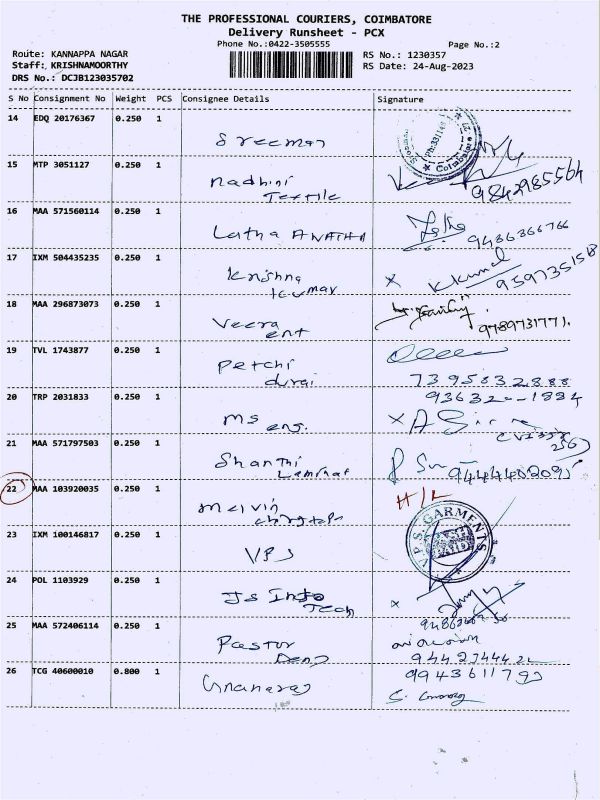 THE PROFESSIONAL COURIERS, COIMBATORE
Delivery Runsheet - PCX
Phone No.:0422-3505555
Page No.:2
Route: KANNAPPA NAGAR
RS No.: 1230357
Staff: KRISHNAMOORTHY
RS Date: 24-Aug-2023
DRS No.: DCJB123035702
S No Consignment No Weight PCS Consignee Details Signature
14 EDQ 20176367 0.250 1
Sreeman
Coimbatore
15 MTP 3051127 0.250 1
Nadhini
Textile
9842985564
16 MAA 571560114 0.250 1
Latha ANATHA
9486366766
17 IXM 504435235 0.250 1
Krishna
Kumar
x
959735158
18 MAA 296873073 0.250 1
Veera
ent
9789731771.
19 TVL 1743877 0.250 1
Petchi
durai
7395832888
20 TRP 2031833 0.250 1
MS
eng.
x
21 MAA 571797503 0.250 1
Shanthi
Laminat
22 MAA 103920035 0.250 1
Melvin
H/L
23 IXM 100146817 0.250 1
VPS
V.P.S. GARMENTS
24 POL 1103929 0.250 1
JS Info
Tech
x
25 MAA 572406114 0.250 1
Pastor
26 TCG 40600010 0.800 1
9943611793
Gnanaraj